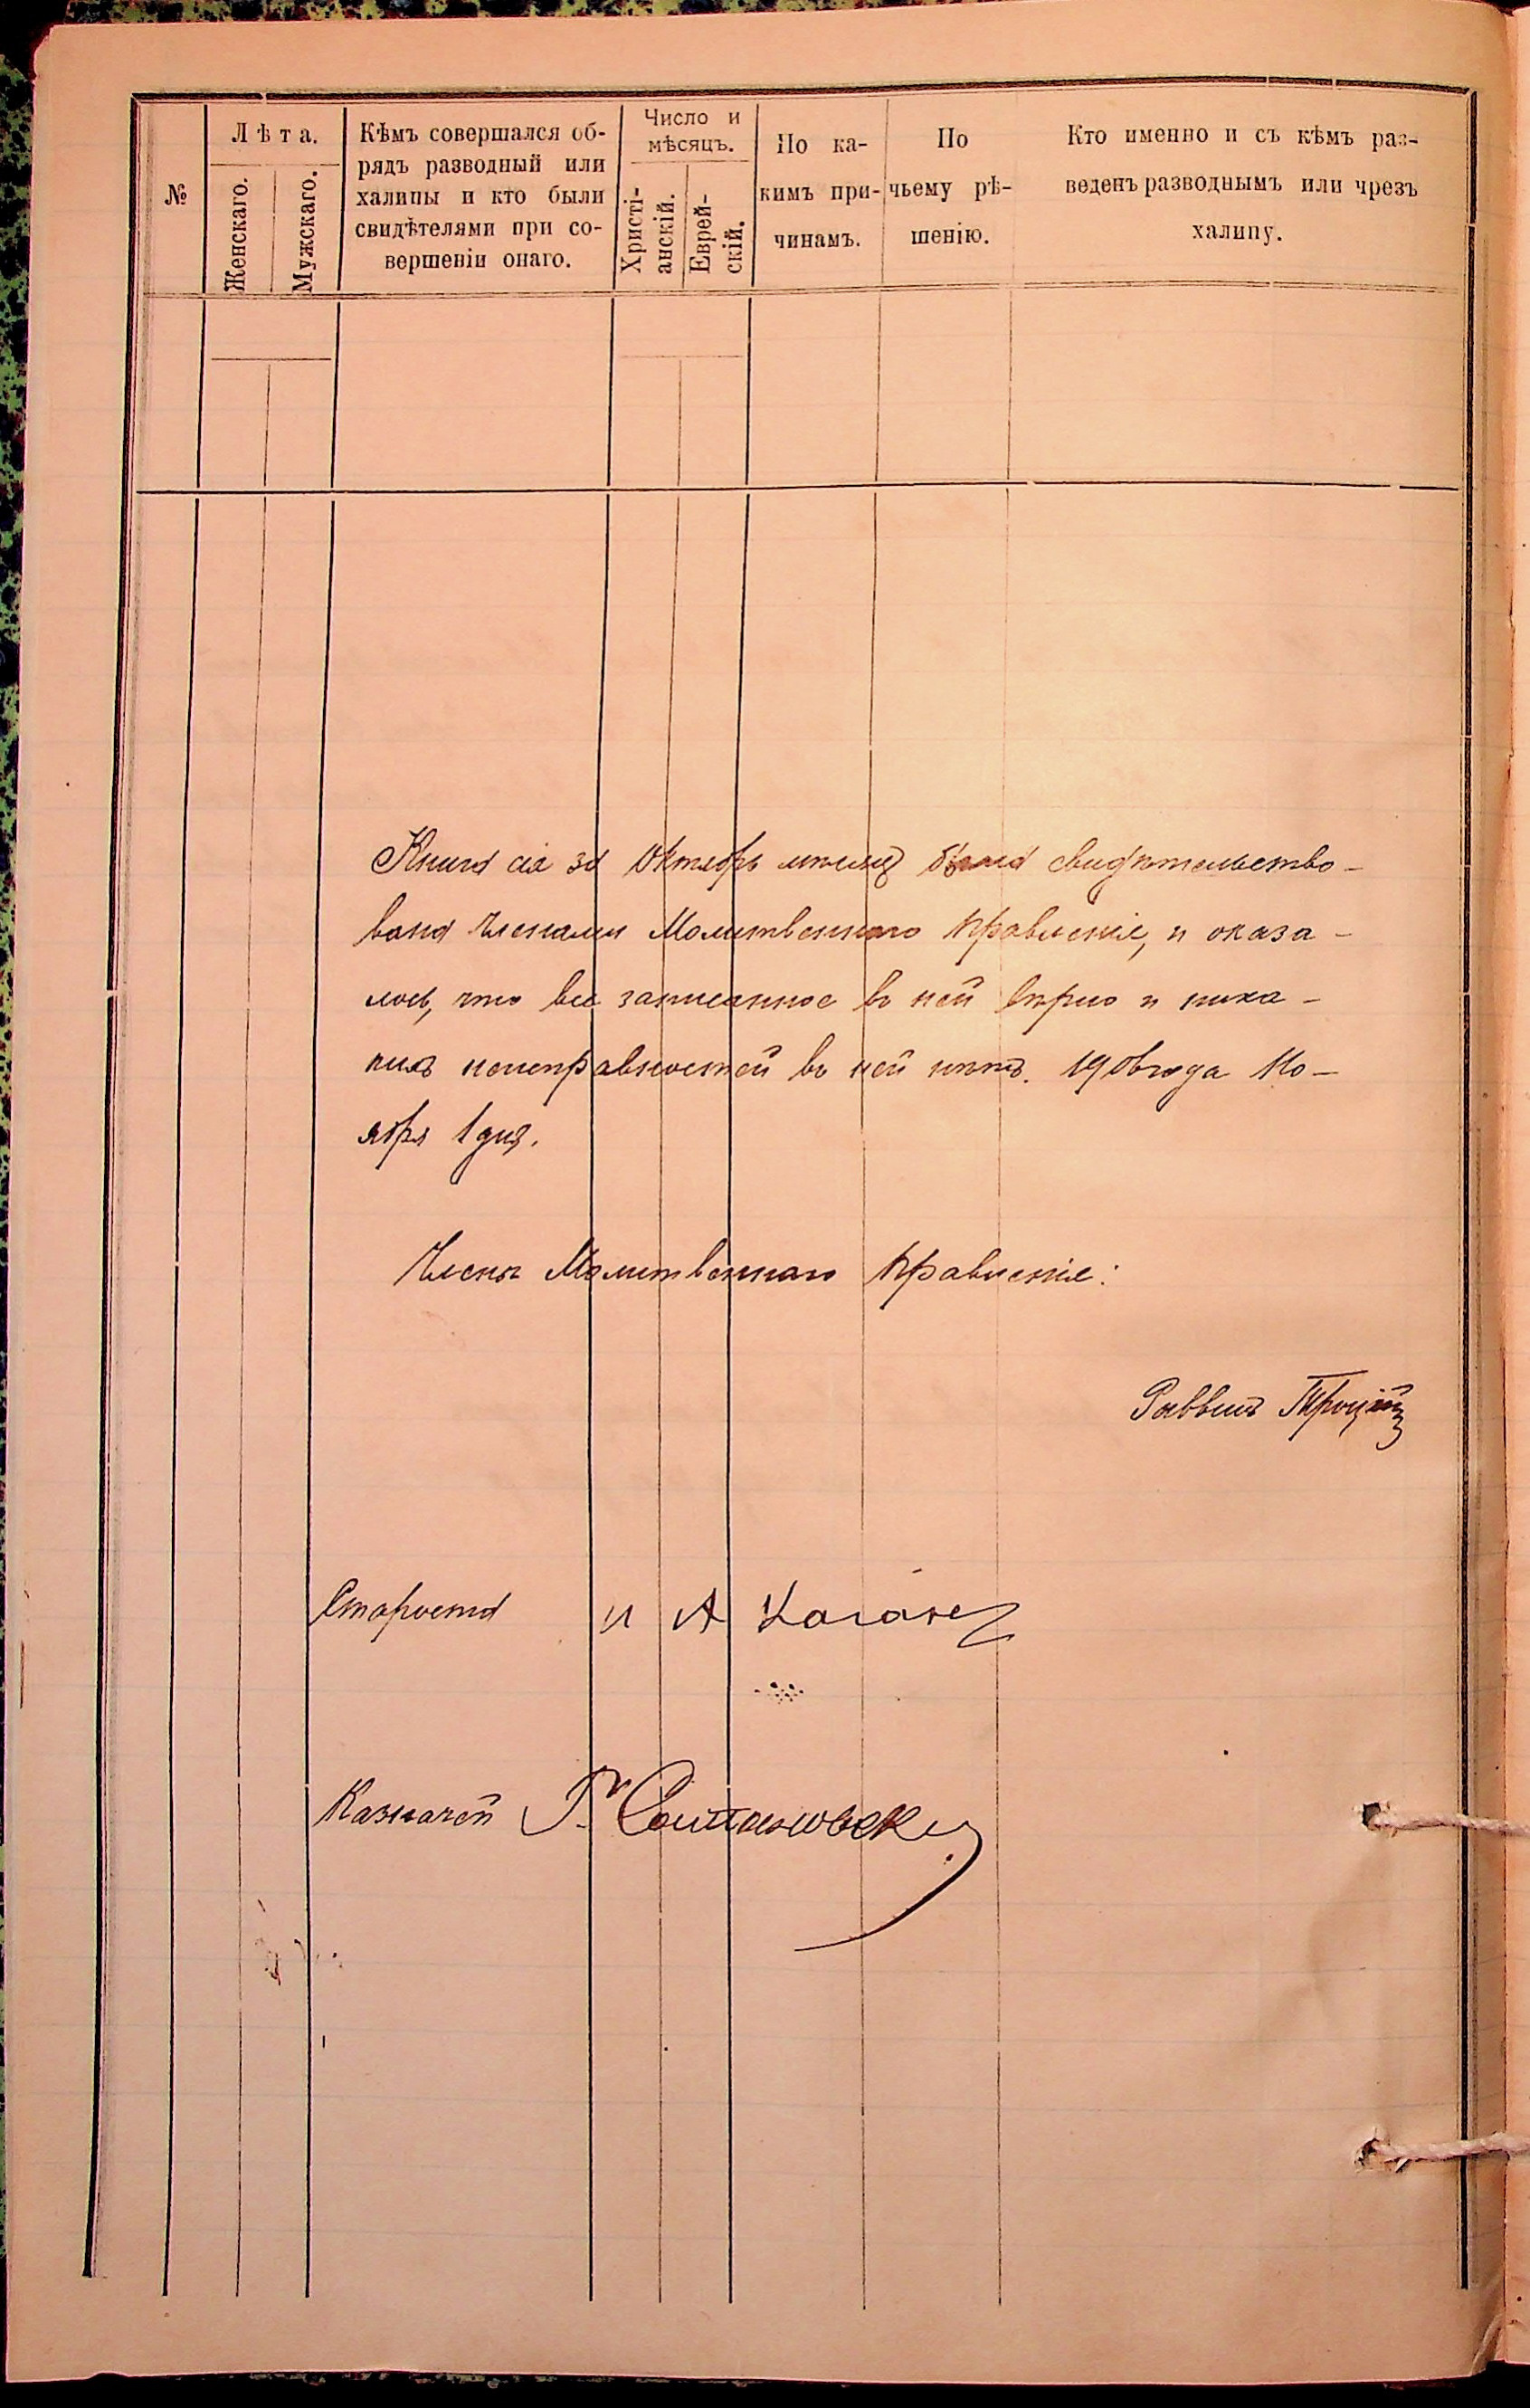 №
Лѣта.
Женскаго.
Мужскаго.
Кѣмъ совершался об-
рядъ разводный или
халицы и кто были
свидѣтелями при со-
вершеніи онаго.
Число и
мѣсяцъ.
Христі-
анскій.
Еврей-
скій.
По ка-
кимъ при-
чинамъ.
По
чьему рѣ-
шенію.
Кто именно и съ кѣмъ раз-
веденъ разводнымъ или чрезъ
халицу.
Книга сія за Октябрь мѣсяцъ была свидѣтельство-
вана Членами Молитвеннаго Правленія, и оказа-
лось, что все записанное въ ней вѣрно и ника-
кихъ неисправностей въ ней нѣтъ. 1906 года Но-
ября 1 дня.
Члены Молитвеннаго Правленія:
Раввинъ Троцкій
Староста И А Коганъ
Казначей Г.